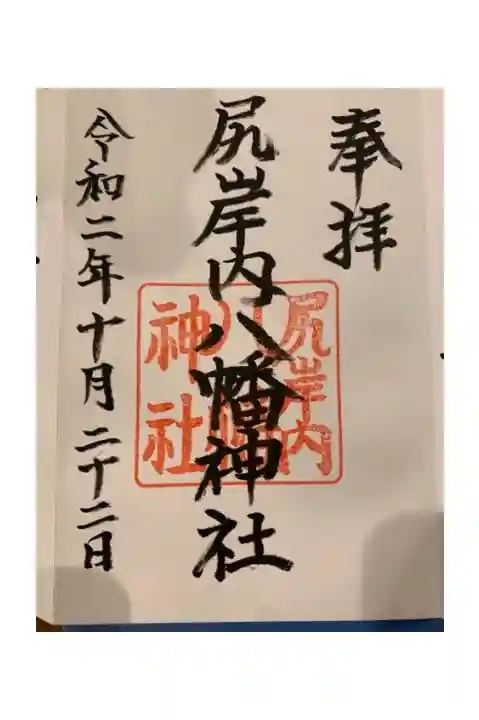 奉拝
尻岸内八幡神社
令和二年十月二十二日
尻岸内
八幡
神社